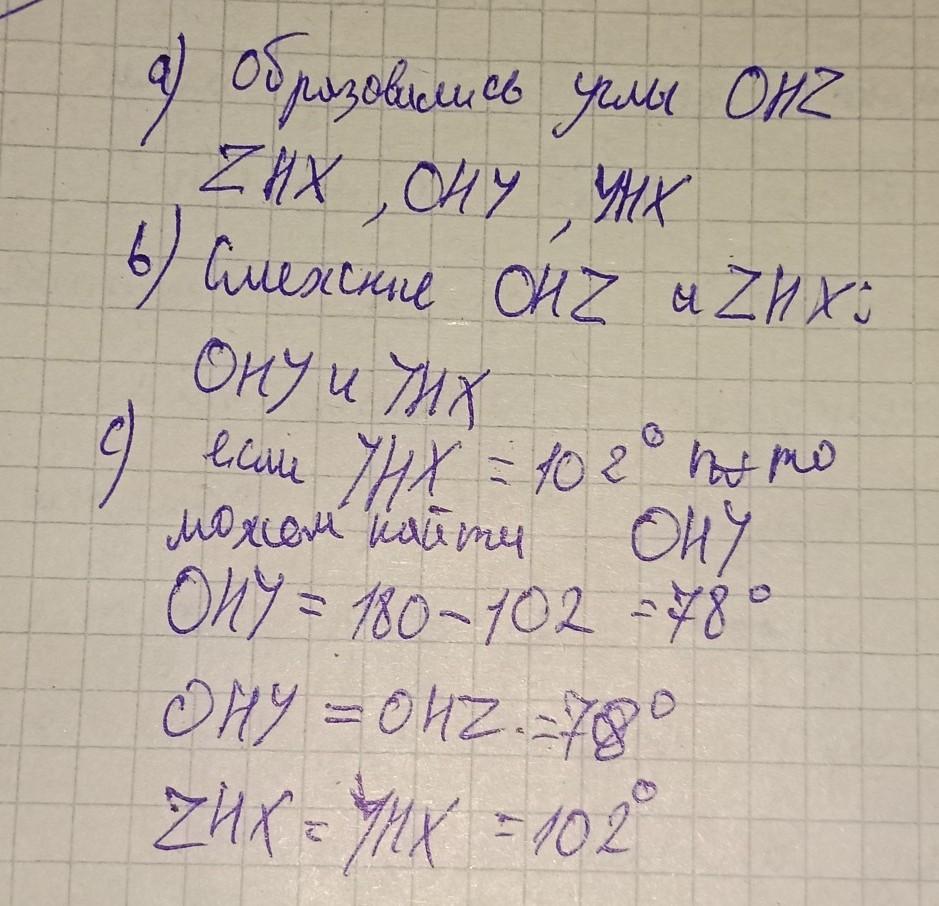 а) Образовались углы OHZ
ZHX, OHY, YHX
b) Смежные OHZ и ZHX;
OHY и YHX
c) если YHX = 102° то
можем найти OHY
OHY = 180 - 102 = 78°
OHY = OHZ = 78°
ZHX = YHX = 102°